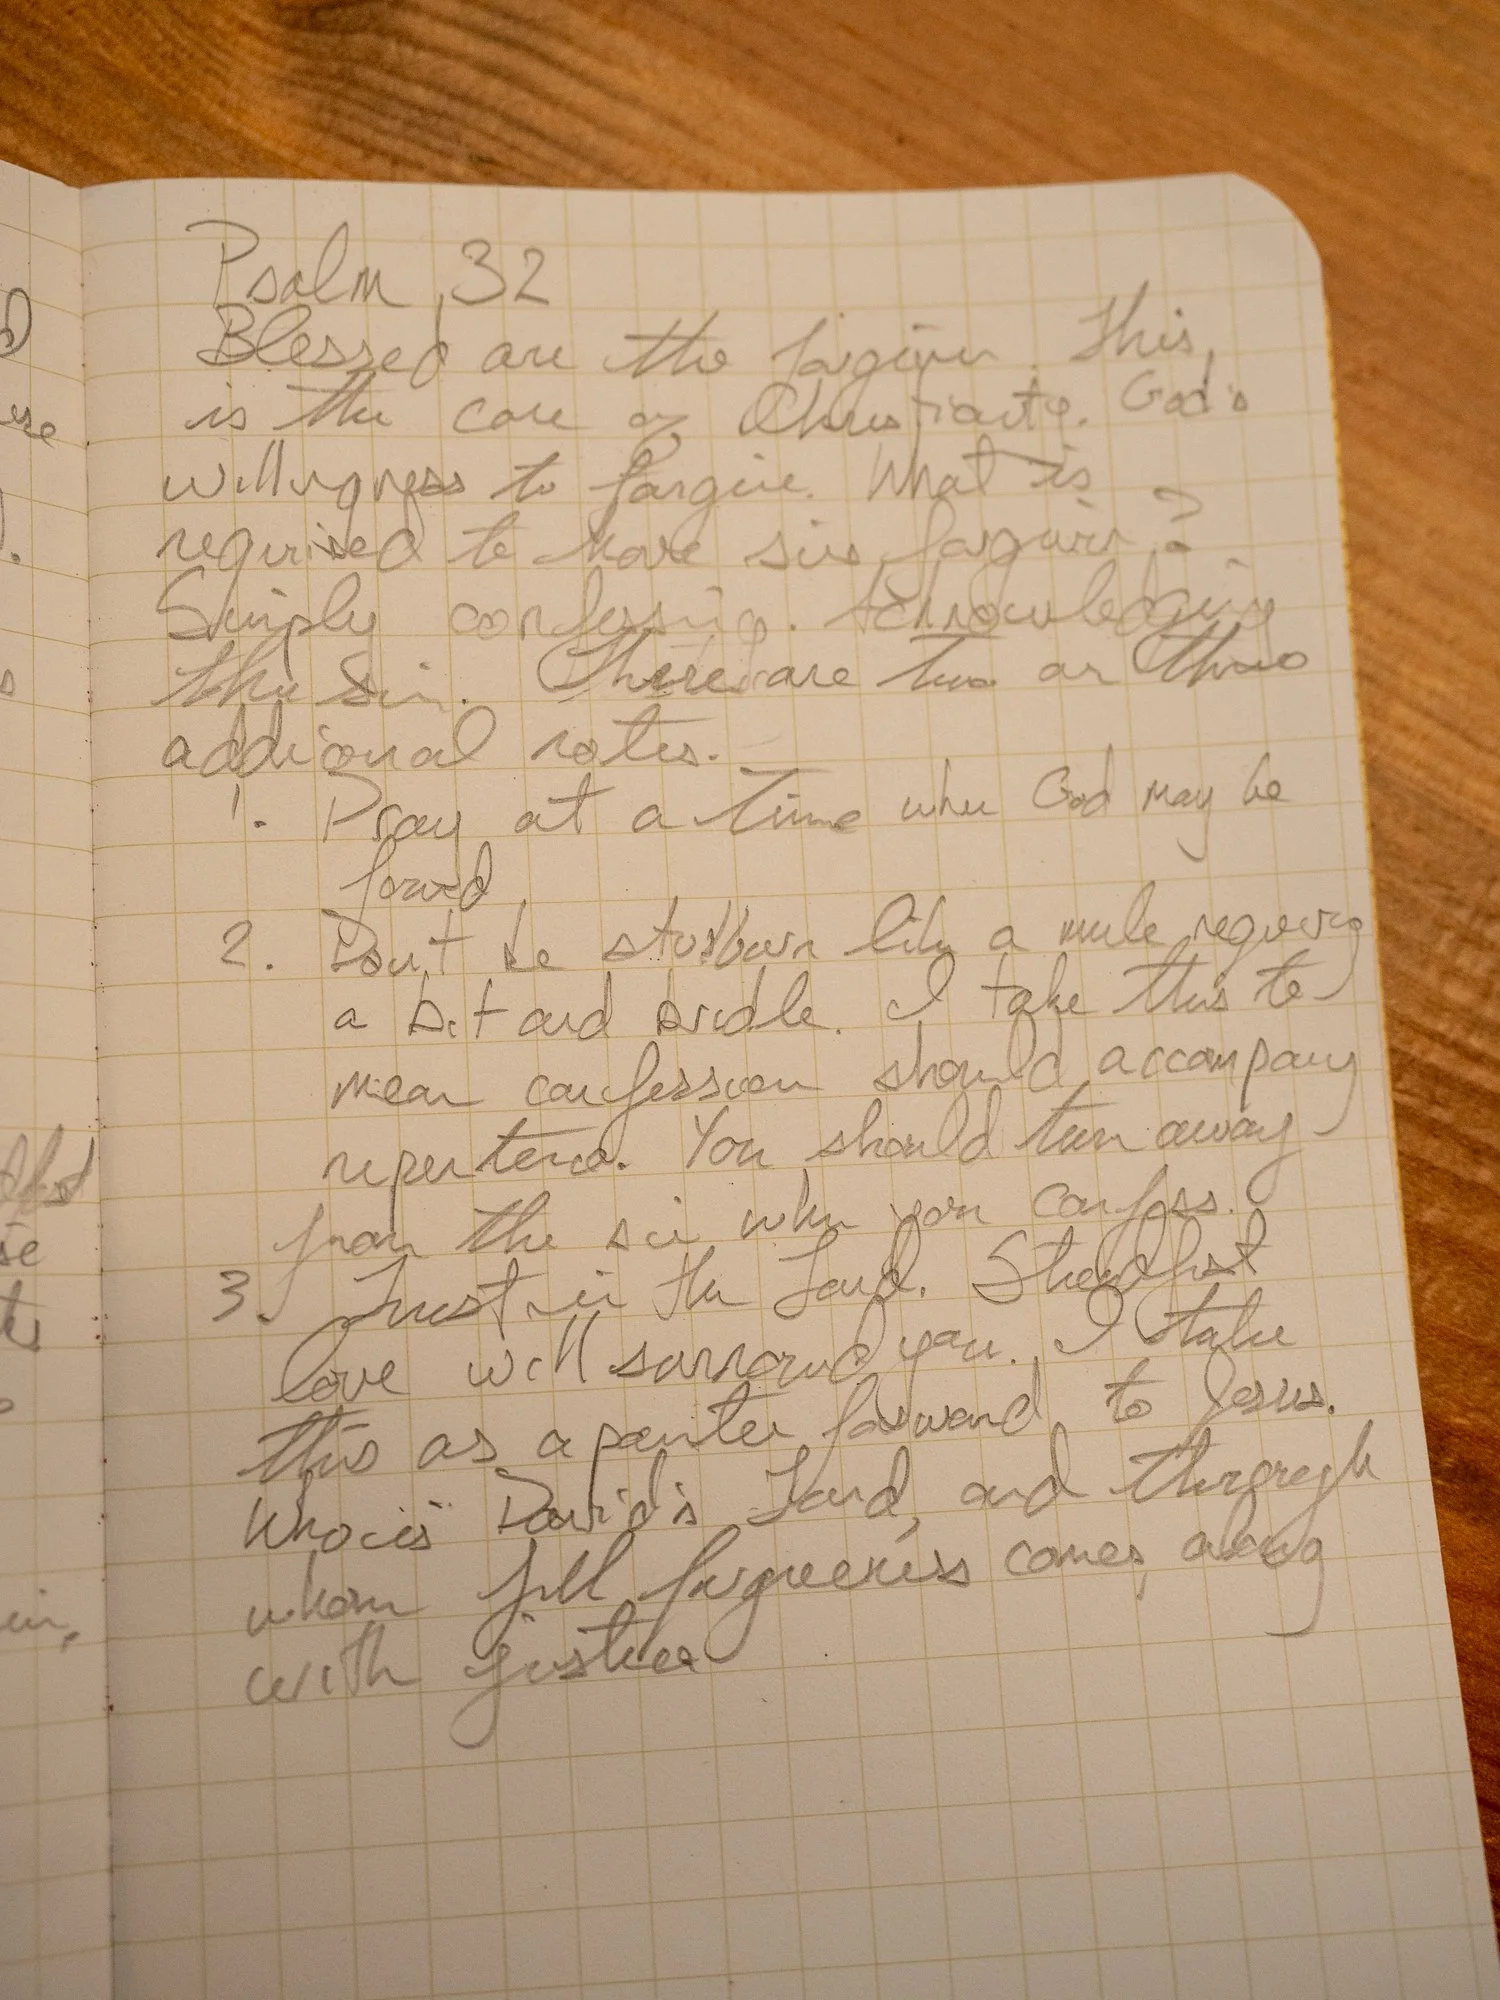 Psalm 32
Blessed are the forgiven. This,
is the core of Christianity. God's
willingness to forgive. What is
required to have sins forgiven?
Simply confessing. Acknowledging
the sin. There are two or three
addional notes.
1. Pray at a time when God may be
found
2. Don't be stubborn like a mule requiring
a bit and bridle. I take this to
mean confession should accompany
repentence. You should turn away
from the sin when you confess.
3. Trust in the Lord. Steadfast
love will surround you. I take
this as a pointer forward to Jesus.
Who is David's Lord, and through
whom full forgiveness comes, along
with justice
ere
se
in,